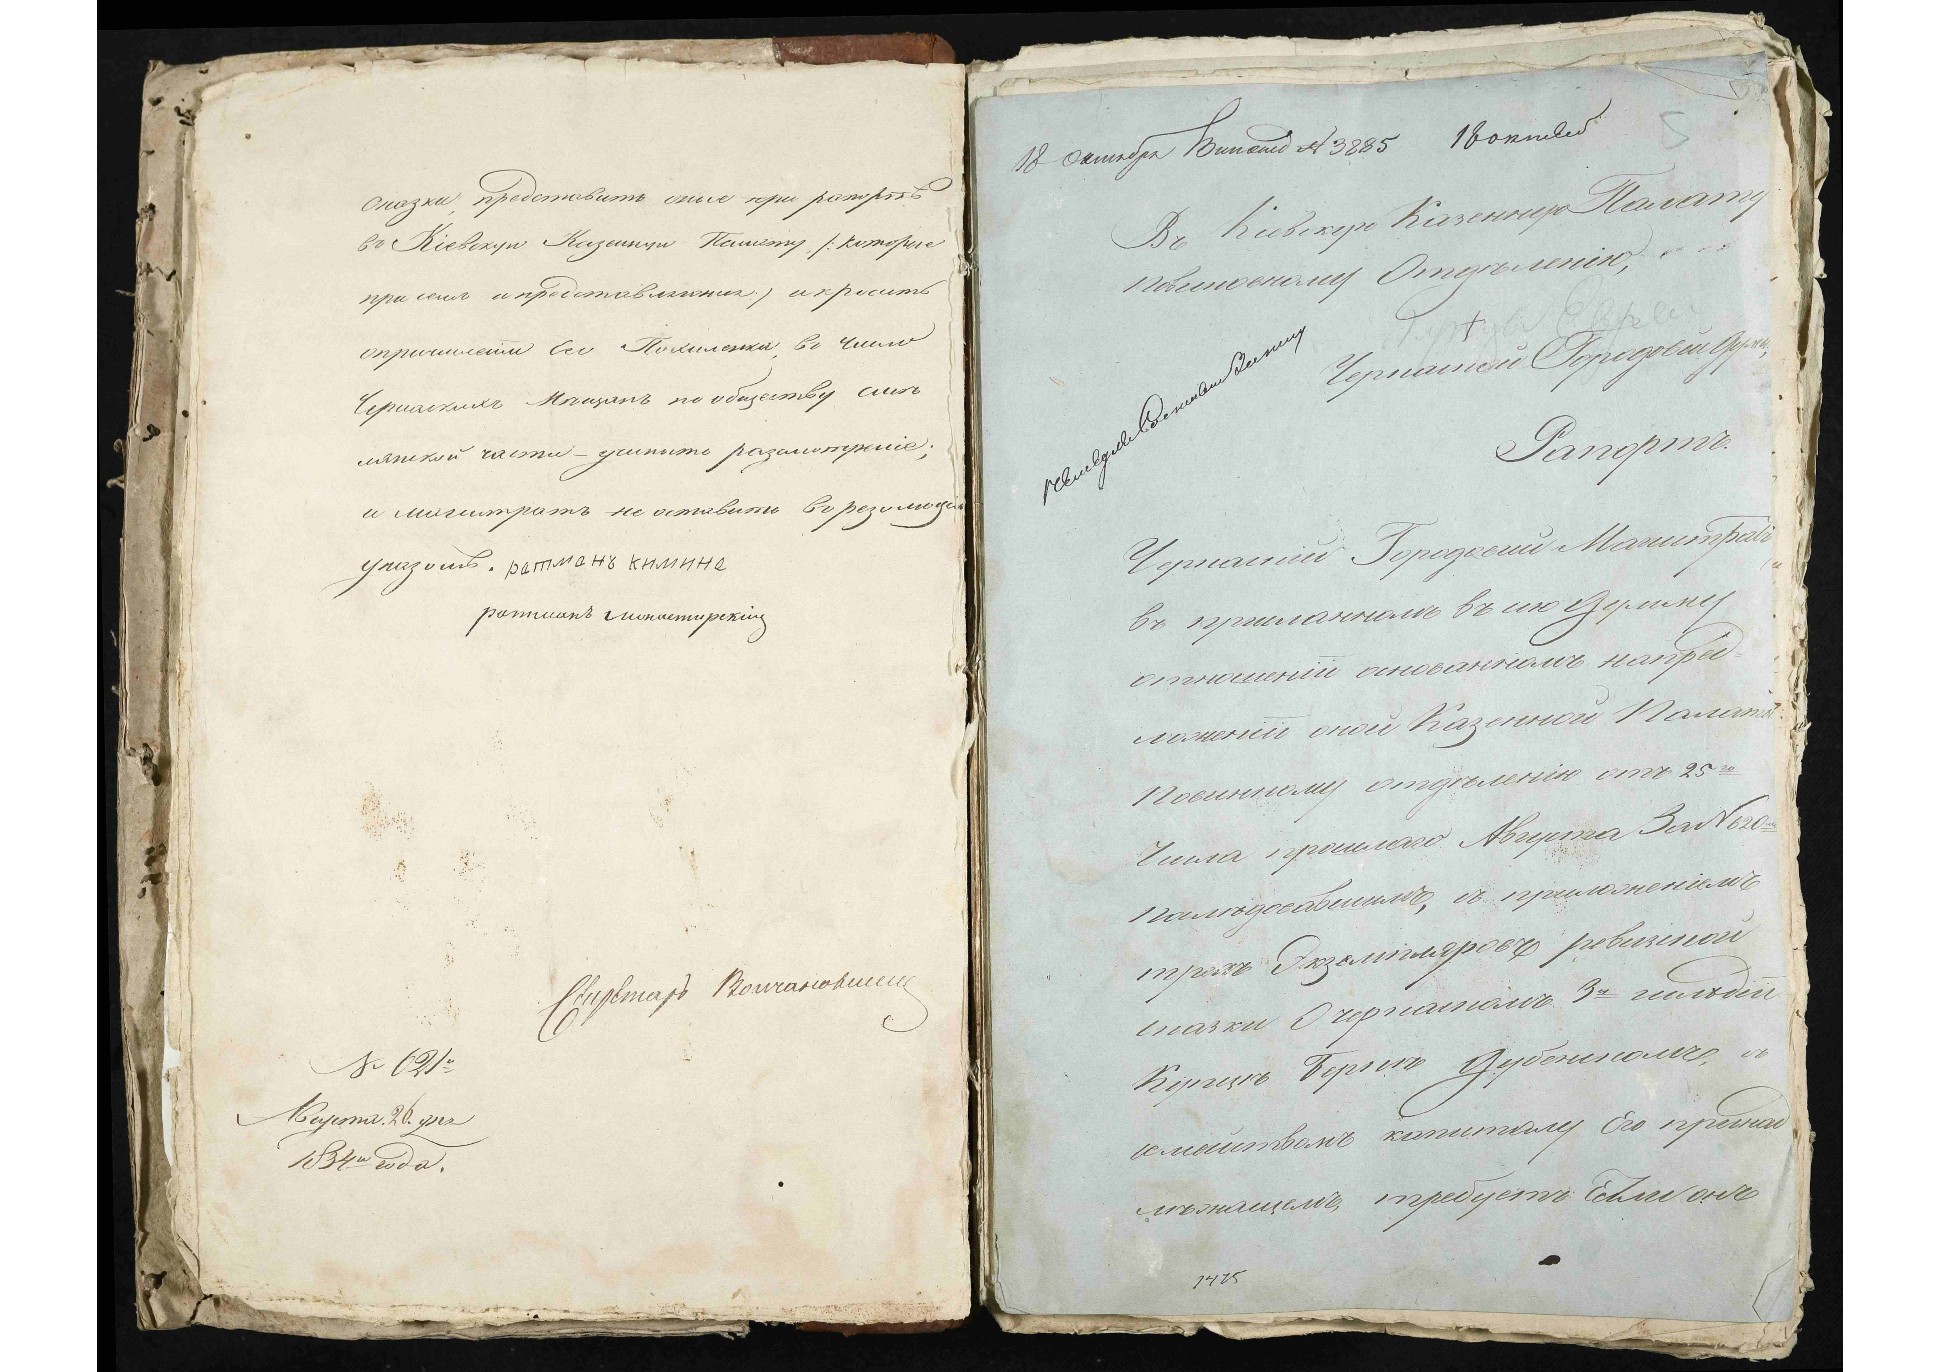 сказки, представить оные при рапорте
въ Кіевскую Казенную Палату /: которые
при семъ и представляются :/ и просить
о причисленіи его Похиленка, въ число
Черкаскихъ Мещанъ по обществу смѣ
лянской части – учинить разсмотреніе;
и магистратъ не оставить въ резолюціи
указомъ. ратманъ климна
ратманъ Монастирскій
Секретарь Волчановскій
№ 621й
Августа 26 дня
1834го года.
18 октября № 3885 18 октяб
Въ Кіевскую Казенную Палату
По винному Отдѣленію,
Черкаской Городовой Думы,
Рапортъ.
Черкаскій Городовый Магистратъ
въ присланномъ въ сію Думу
отношеніи основанномъ на пред-
ложеніи оной Казенной Палаты
По винному отдѣленію отъ 25го
Числа прошлаго Августа За № 620мъ
Последовавшимъ, съ приложеніемъ
трехъ Экземпляровъ ревизской
сказки О черкаскомъ 3й гильдіи
Купцѣ Беркѣ Дубенскомъ, съ
семействомъ капиталу Его принад
лѣжащемъ, требуетъ Если онъ
1475